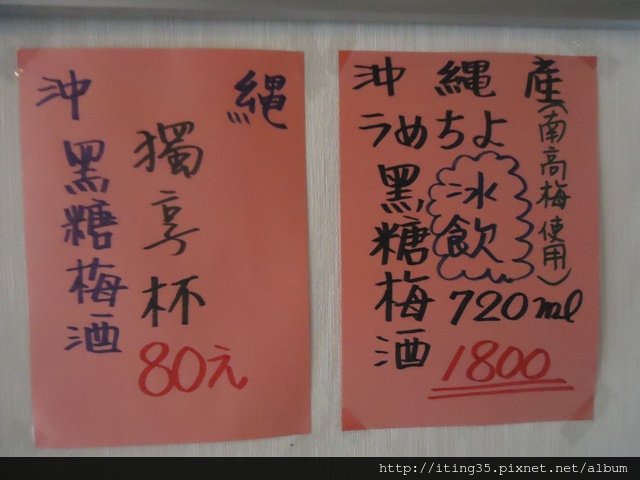 沖縄
黑糖梅酒
獨享杯
80え
沖縄產
(南高梅使用)
うめちよ
黑糖梅酒
冰飲
720ml
1800
http://iting35.pixnet.net/album